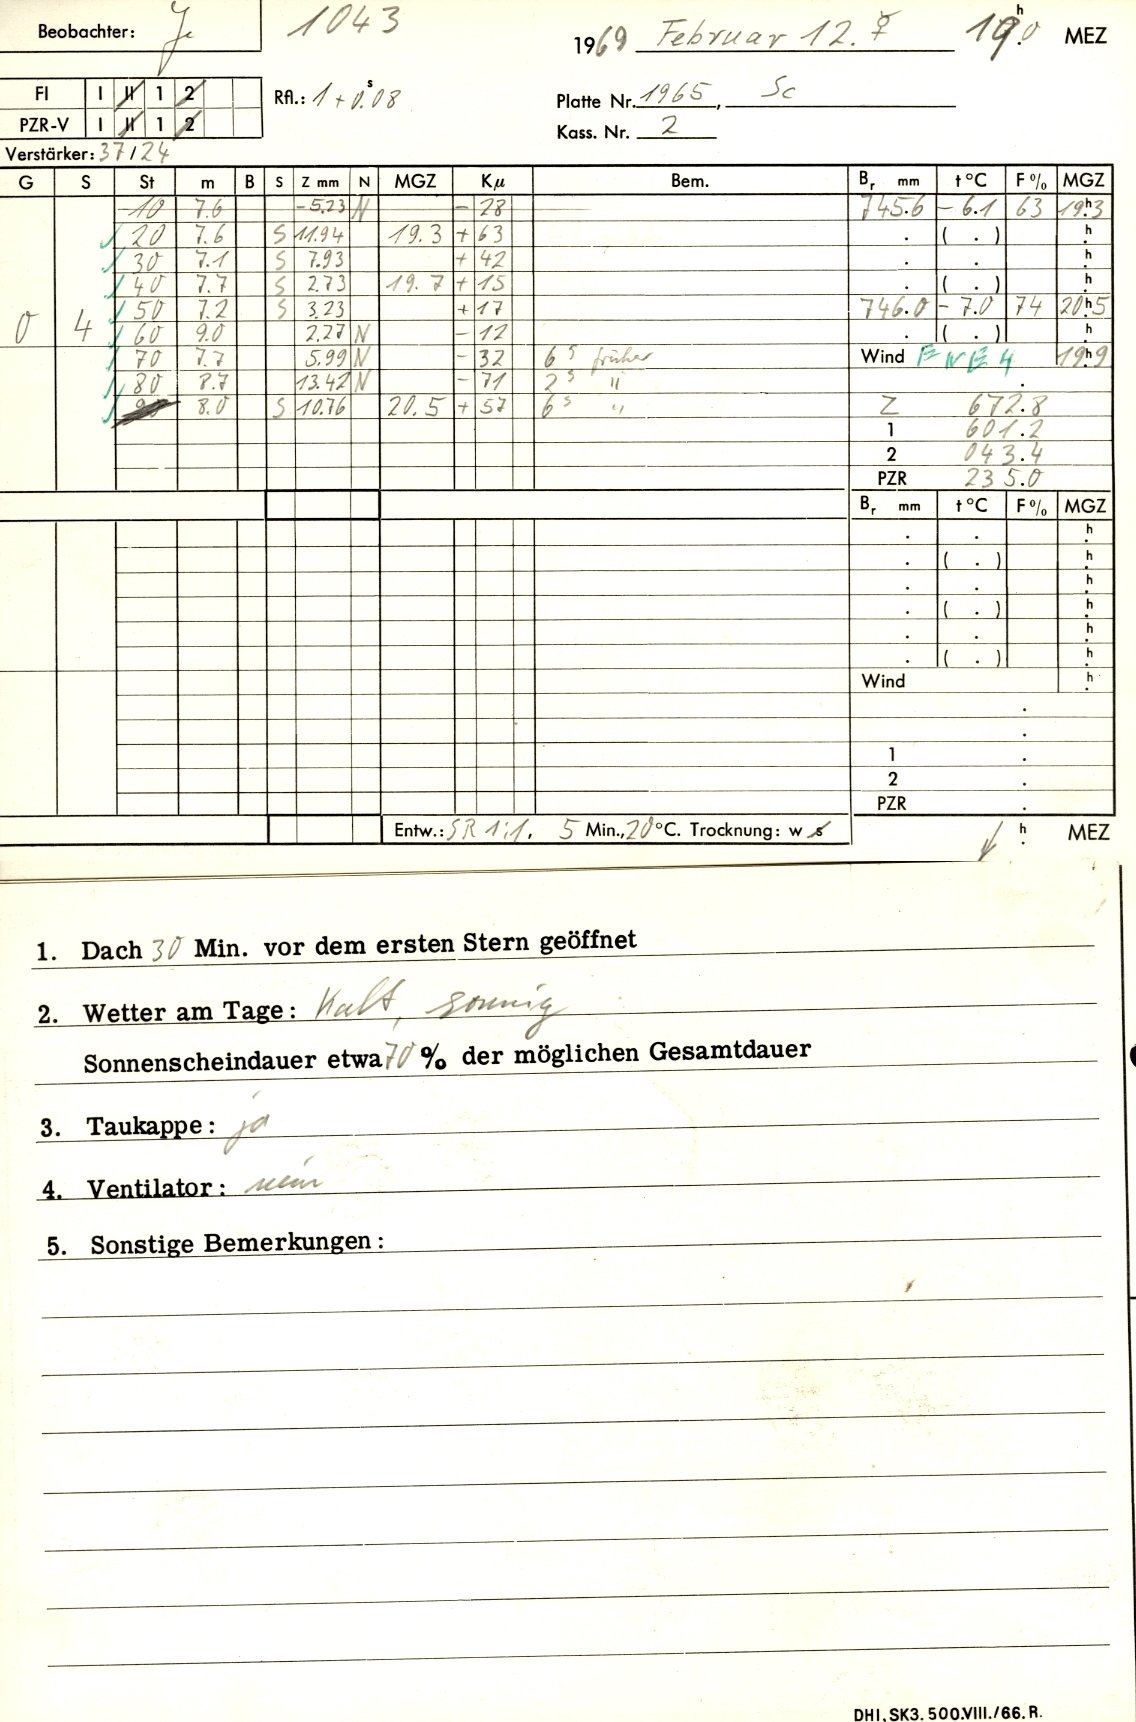 Beobachter: Je 1043 1969 Februar 12. ☿ 19ʰ.0 MEZ
FI I II 1 2 Rfl.: 1 + 0ˢ.08 Platte Nr. 1965, Sc
PZR-V I II 1 2 Kass. Nr. 2
Verstärker: 37/24
G S St m B S Z mm N MGZ Kμ Bem. Bᵣ mm t °C F % MGZ
10 7.6 5.23 N - 28 745.6 - 6.1 63 19ʰ.3
20 7.6 S 11.94 19.3 + 63 . ( . ) ʰ.
30 7.1 S 7.93 + 42 . . ʰ.
40 7.7 S 2.73 19.7 + 15 . ( . ) ʰ.
0 4 50 7.2 S 3.23 + 17 746.0 - 7.0 74 20ʰ.5
60 9.0 2.27 N - 12 . ( . ) ʰ.
70 7.7 5.99 N - 32 6ˢ früher Wind ENE 4 19ʰ.9
80 8.7 13.42 N - 71 2ˢ " .
90 8.0 S 10.76 20.5 + 57 6ˢ " Z 672.8
1 601.2
2 043.4
PZR 235.0
Bᵣ mm t °C F % MGZ
. . ʰ.
. ( . ) ʰ.
. . ʰ.
. ( . ) ʰ.
. . ʰ.
. ( . ) ʰ.
Wind ʰ.
.
.
1 .
2 .
PZR .
Entw.: SR 1:1, 5 Min., 20 °C. Trocknung: w s ʰ. MEZ
1. Dach 30 Min. vor dem ersten Stern geöffnet
2. Wetter am Tage: Kalt, sonnig
Sonnenscheindauer etwa 70 % der möglichen Gesamtdauer
3. Taukappe: ja
4. Ventilator: nein
5. Sonstige Bemerkungen:
DHI. SK3. 500.VIII./66. R.